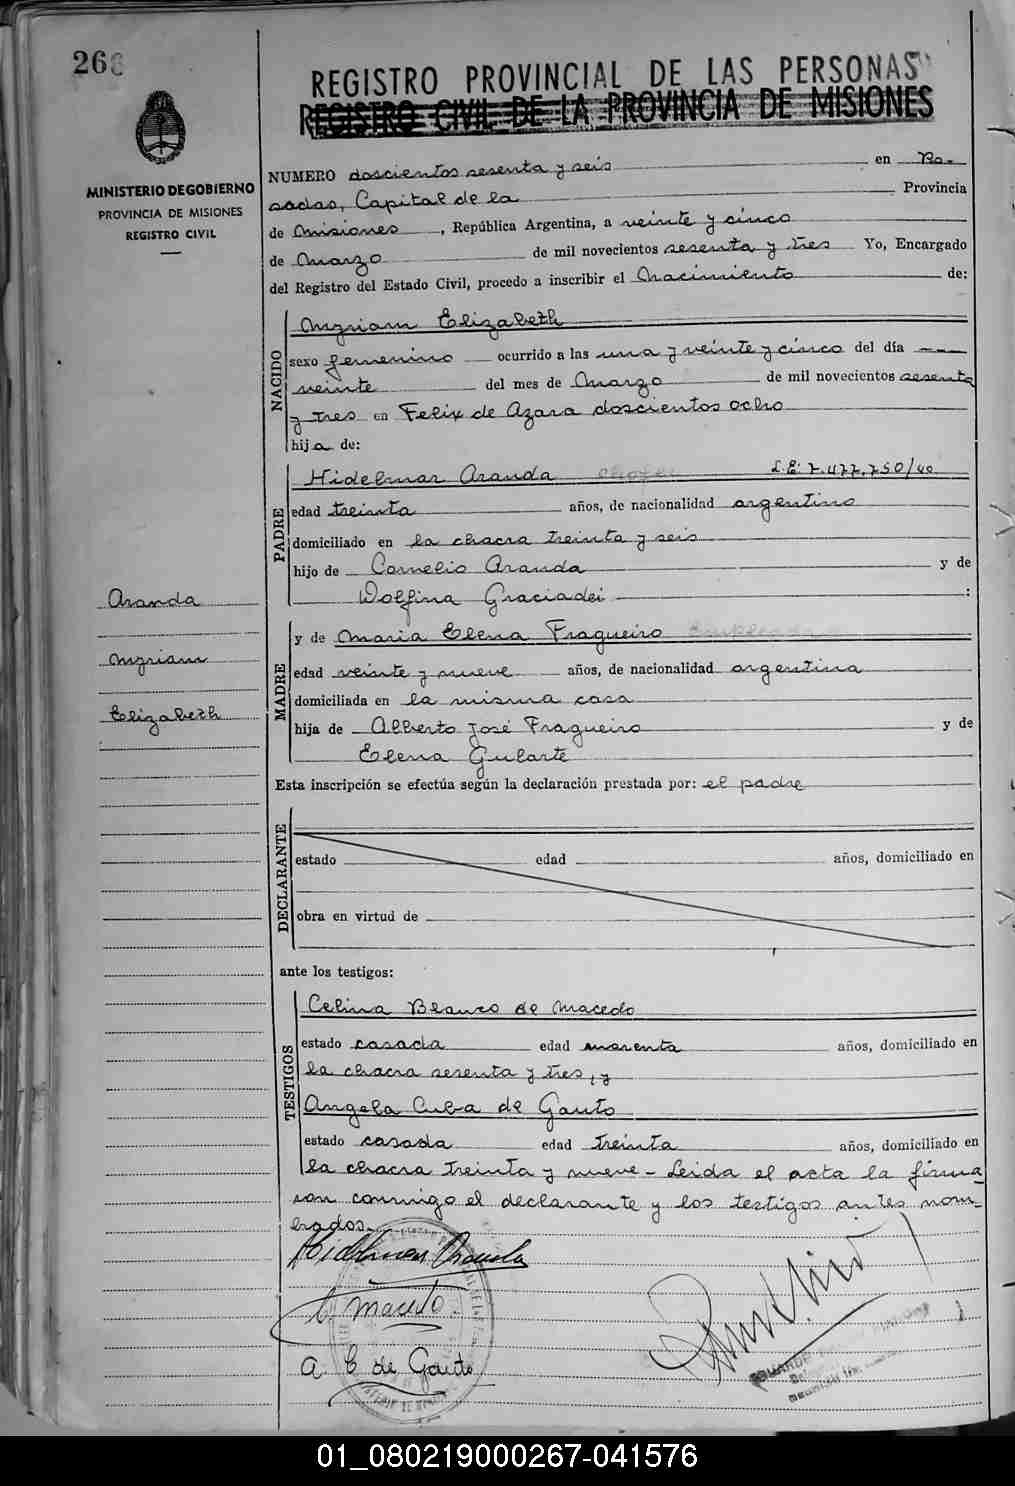 266
REGISTRO PROVINCIAL DE LAS PERSONAS
REGISTRO CIVIL DE LA PROVINCIA DE MISIONES
MINISTERIO DE GOBIERNO
PROVINCIA DE MISIONES
REGISTRO CIVIL
NUMERO doscientos sesenta y seis en Po-
sadas, Capital de la Provincia
de Misiones, República Argentina, a veinte y cinco
de Marzo de mil novecientos sesenta y tres Yo, Encargado
del Registro del Estado Civil, procedo a inscribir el Nacimiento de:
NACIDO
Myriam Elizabeth
sexo femenino ocurrido a las una y veinte y cinco del día ---
veinte del mes de Marzo de mil novecientos sesenta
y tres en Felix de Azara doscientos ocho
hija de:
PADRE
Hidelmar Aranda chofer L.E: 7.477.750/40
edad treinta años, de nacionalidad argentino
domiciliado en la chacra treinta y seis
hijo de Cornelio Aranda y de
Wolfina Graciadei :
MADRE
y de Maria Elena Fragueiro Empleada
edad veinte y nueve años, de nacionalidad argentina
domiciliada en la misma casa
hija de Alberto José Fragueiro y de
Elena Gularte
Aranda
Myriam
Elizabeth
Esta inscripción se efectúa según la declaración prestada por: el padre
DECLARANTE
estado edad años, domiciliado en
obra en virtud de
ante los testigos:
TESTIGOS
Celina Blanco de Macedo
estado casada edad cuarenta años, domiciliado en
la chacra sesenta y tres, y
Angela Cuba de Gauto
estado casada edad treinta años, domiciliado en
la chacra treinta y nueve - Leida el acta la firma
con conmigo el declarante y los testigos antes nom-
brados.
Hidelmar Aranda
C. Macedo.
A. C de Gauto
01_080219000267-041576